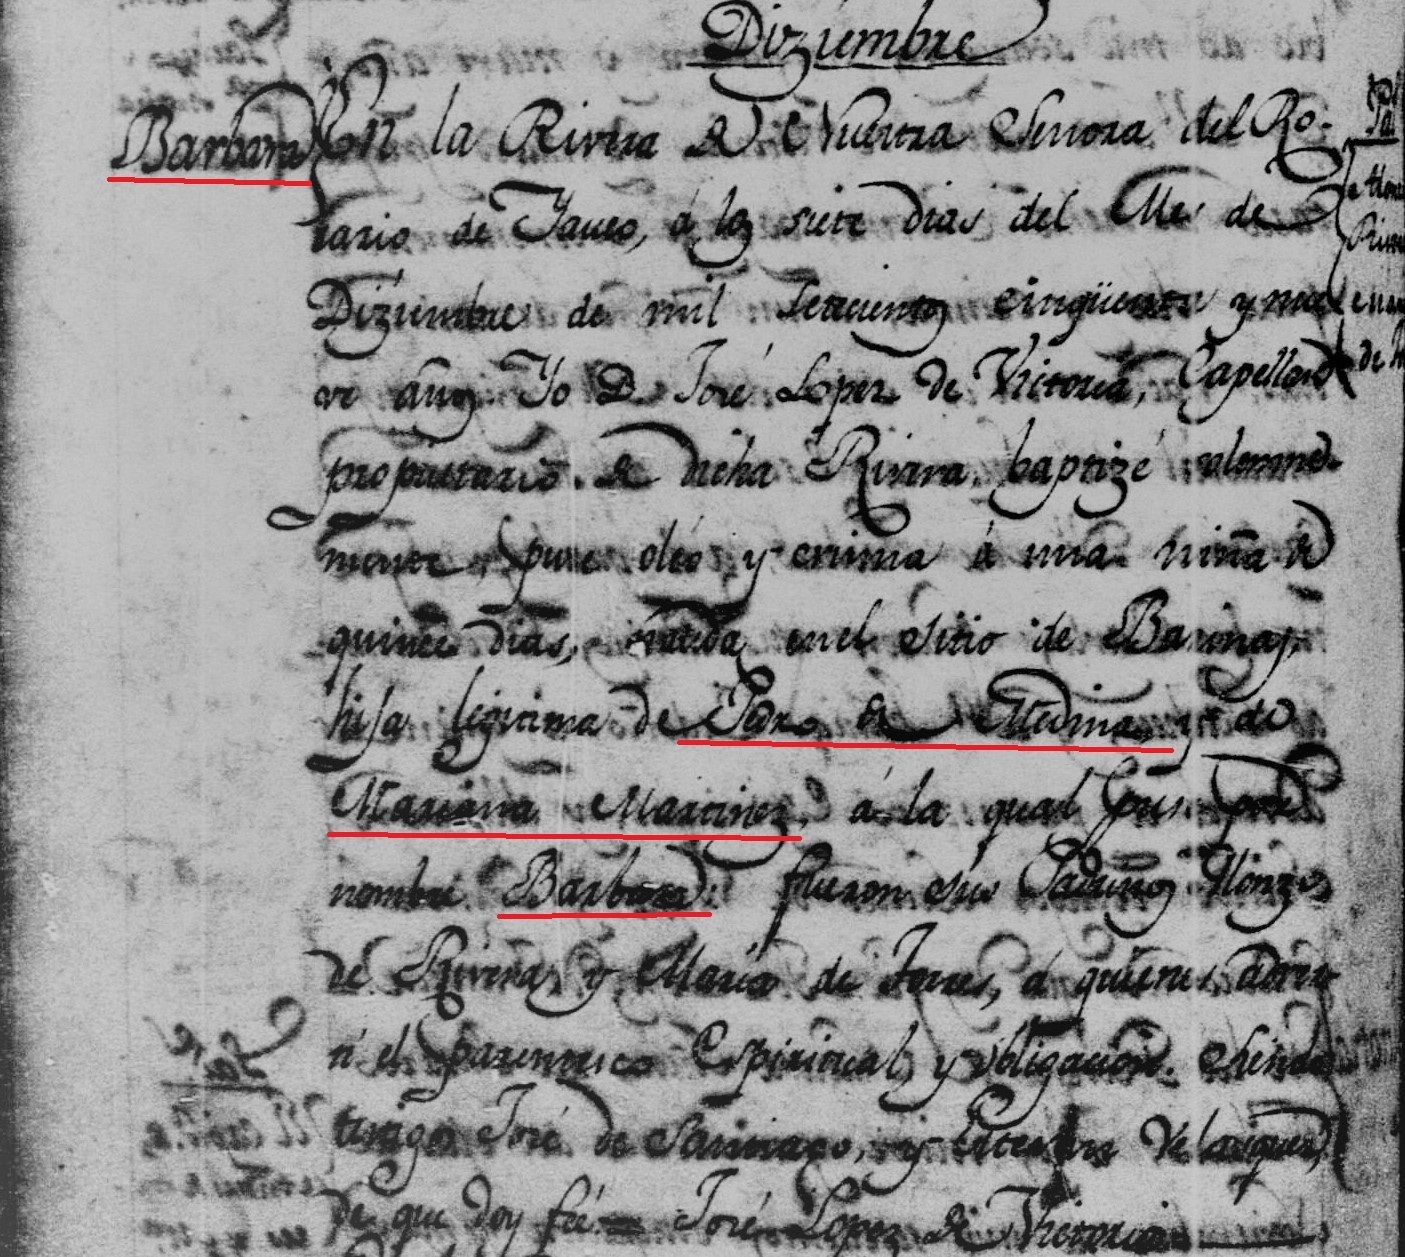 Diziembre
Barbara
En la Rivera de Nuestra Señora del Ro-
sario de Yauco, á los siete dias del Mes de
Diziembre de mil setecientos cinqüenta y nue
ve años Yo D. José Lopez de Victoria, Capellan
propietario de dicha Rivera, baptizé solemne-
mente, puse oléo y crisma á una niña de
quince dias, nacida en el sitio de Barinas,
hija legitima de Pedro de Medina y de
Mariana Martinez, á la qual puse por
nombre Barbara: fueron sus Padrinos Alonzo
de Rivera, y Maria de Torres, á quienes adver
ti el parentesco Espiritual, y obligacion. Siendo
testigos José de Santiago, y Velasquez
de que doy fée = José Lopez de Victoria